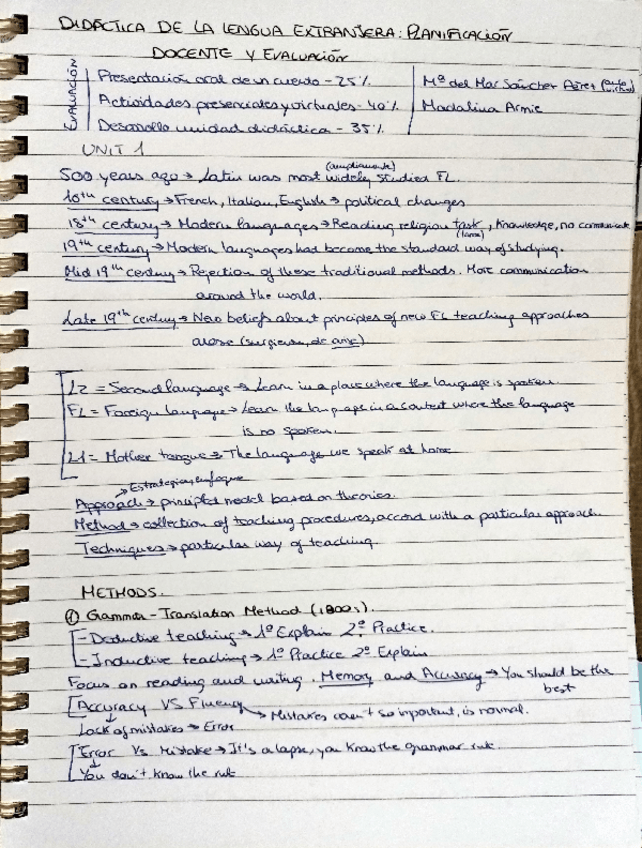 DIDÁCTICA DE LA LENGUA EXTRANJERA: PLANIFICACIÓN
DOCENTE Y EVALUACIÓN
EVALUACIÓN
Presentación oral de un cuento - 25%
Actividades presenciales y virtuales - 40%
Desarrollo unidad didáctica - 35%
Mª del Mar Sánchez
Madalina Armie
UNIT 1
(ampliamente)
500 years ago → Latin was most widely studied FL.
16th century → French, Italian, English → political changes
18th century → Modern languages → Reading religion task, knowledge, no comunicate
(tarea)
19th century → Modern languages had become the standard way of studying.
Mid 19th century → Rejection of these traditional methods. More communication
around the world.
Late 19th century → New beliefs about principles of new FL teaching approaches
arose (surgieron, de arise)
L2 = Second language → Learn in a place where the language is spoken.
FL = Foreign language → Learn the language in a context where the language
is no spoken.
L1 = Mother tongue → The language we speak at home
→ Estrategia, enfoque
Approach → principled model based on theories.
Method → collection of teaching procedures, accord with a particular approach.
Techniques → particular way of teaching
METHODS.
① Grammar-Translation Method (1800s).
- Deductive teaching → 1º Explain 2º Practice.
- Inductive teaching → 1º Practice 2º Explain
Focus on reading and writing. Memory and Accuracy → You should be the
best
Accuracy VS Fluency → Mistakes aren't so important, is normal.
Lack of mistakes → Error
Error Vs Mistake → It's a lapse, you know the grammar rule.
You don't know the rule